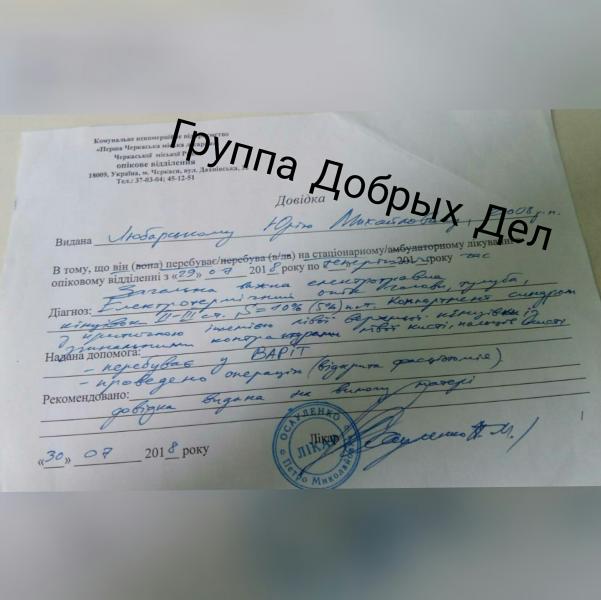 Комунальне некомерційне підприємство
«Перша Черкаська міська лікарня»
Черкаської міської Р
опікове відділення
18009, Україна, м. Черкаси, вул. Дахнівська,
Тел.: 37-03-04; 45-12-51
Группа Добрых Дел
Довідка
Видана Любарському Юрію Михайловичу, 2008 р.н.
В тому, що він (вона) перебуває/перебува (в/ла) на стаціонарному/амбулаторному лікуванні в
опіковому відділенні з «29» 07 2018 року по «теперішній» 201 року час
Загальна важка електротравма
Діагноз: Електротермічний опік голови, тулуба,
кінцівок II-III ст. S=10% (5%) п.т. Компартмент синдром
з ішемією лівої верхньої кінцівки із
контрактурами лівої кисті, пальців кисті
Надана допомога:
- перебуває у ВАРІТ
- проведено операцію (відкрита фасціотомія)
Рекомендовано:
довідка видана на вимогу матері
Лікар Осауленко П.М.
ОСАУЛЕНКО
ЛІКАР
Петро Миколайович
«30» 07 2018 року